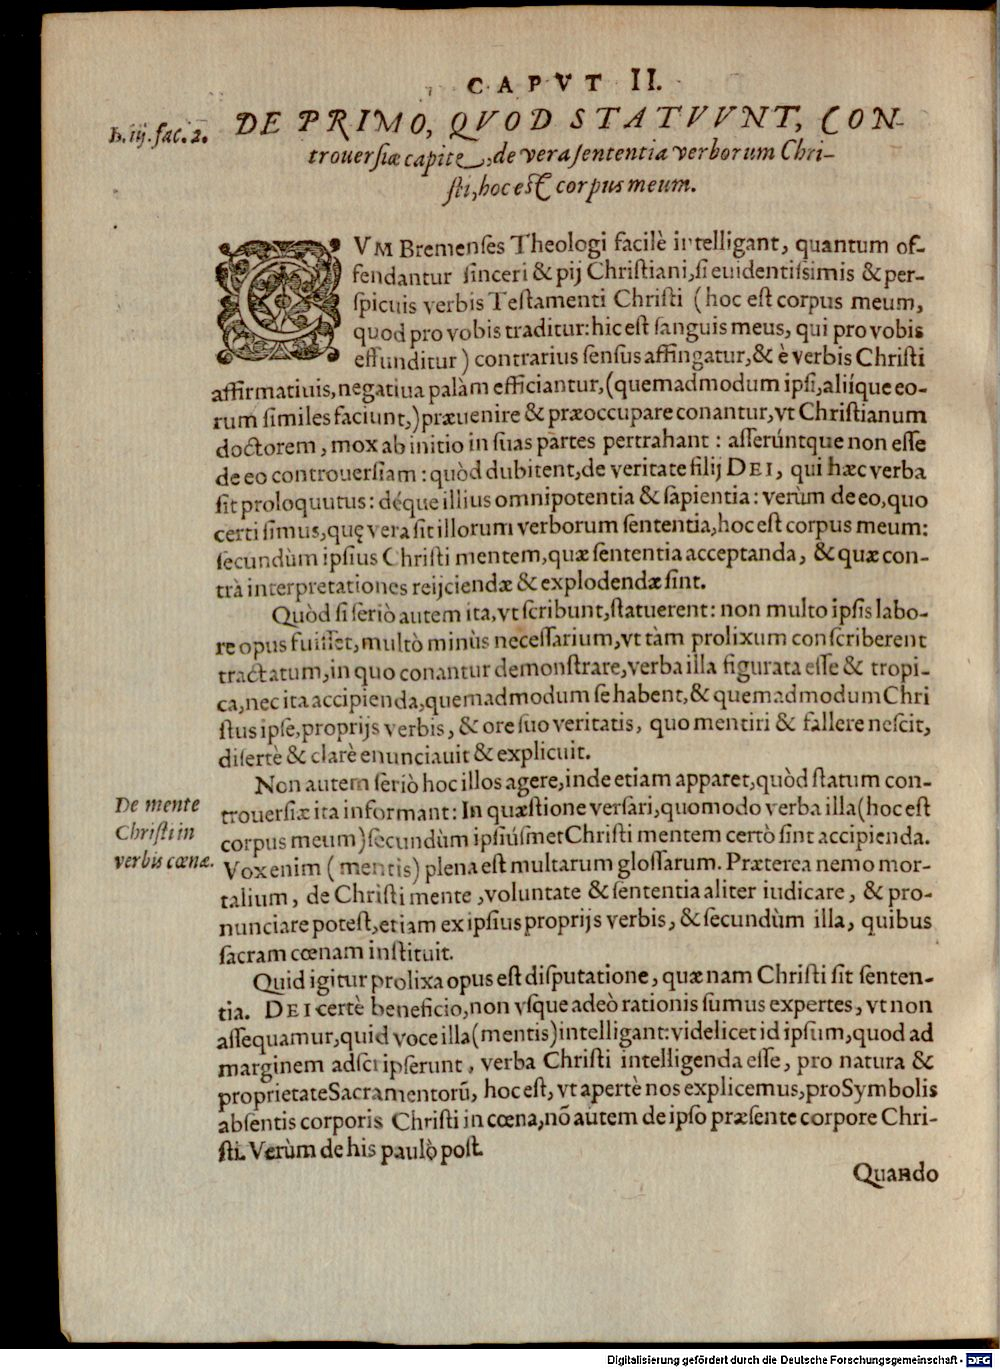 CAPVT II.
B. iij. fac. 2.
DE PRIMO, QVOD STATVVNT, CON-
trouersiæ capite, de vera sententia verborum Chri-
sti, hoc est corpus meum.
CVM Bremenses Theologi facilè intelligant, quantum of-
fendantur sinceri & pij Christiani, si euidentissimis & per-
spicuis verbis Testamenti Christi (hoc est corpus meum,
quod pro vobis traditur: hic est sanguis meus, qui pro vobis
effunditur) contrarius sensus affingatur, & è verbis Christi
affirmatiuis, negatiua palàm efficiantur, (quemadmodum ipsi, aliíque eo-
rum similes faciunt,) præuenire & præoccupare conantur, vt Christianum
doctorem, mox ab initio in suas partes pertrahant: asserúntque non esse
de eo controuersiam: quòd dubitent, de veritate filij DEI, qui hæc verba
sit proloquutus: déque illius omnipotentia & sapientia: verùm de eo, quo
certi simus, quę vera sit illorum verborum sententia, hoc est corpus meum:
secundùm ipsius Christi mentem, quæ sententia acceptanda, & quæ con-
trà interpretationes reijciendæ & explodendæ sint.
Quòd si seriò autem ita, vt scribunt, statuerent: non multo ipsis labo-
re opus fuisset, multò minùs necessarium, vt tàm prolixum conscriberent
tractatum, in quo conantur demonstrare, verba illa figurata esse & tropi-
ca, nec ita accipienda, quemadmodum se habent, & quemadmodum Chri
stus ipse, proprijs verbis, & ore suo veritatis, quo mentiri & fallere nescit,
disertè & clarè enunciauit & explicuit.
Non autem seriò hoc illos agere, inde etiam apparet, quòd statum con-
trouersiæ ita informant: In quæstione versari, quomodo verba illa (hoc est
corpus meum) secundùm ipsiúsmet Christi mentem certò sint accipienda.
De mente
Christi in
verbis cœnæ.
Vox enim (mentis) plena est multarum glossarum. Præterea nemo mor-
talium, de Christi mente, voluntate & sententia aliter iudicare, & pro-
nunciare potest, etiam ex ipsius proprijs verbis, & secundùm illa, quibus
sacram cœnam instituit.
Quid igitur prolixa opus est disputatione, quæ nam Christi sit senten-
tia. DEI certè beneficio, non vsque adeò rationis sumus expertes, vt non
assequamur, quid voce illa (mentis) intelligant: videlicet id ipsum, quod ad
marginem adscripserunt, verba Christi intelligenda esse, pro natura &
proprietate Sacramentorũ, hoc est, vt apertè nos explicemus, pro Symbolis
absentis corporis Christi in cœna, nõ autem de ipso præsente corpore Chri-
sti. Verùm de his paulò post.
Quando
Digitalisierung gefördert durch die Deutsche Forschungsgemeinschaft - DFG